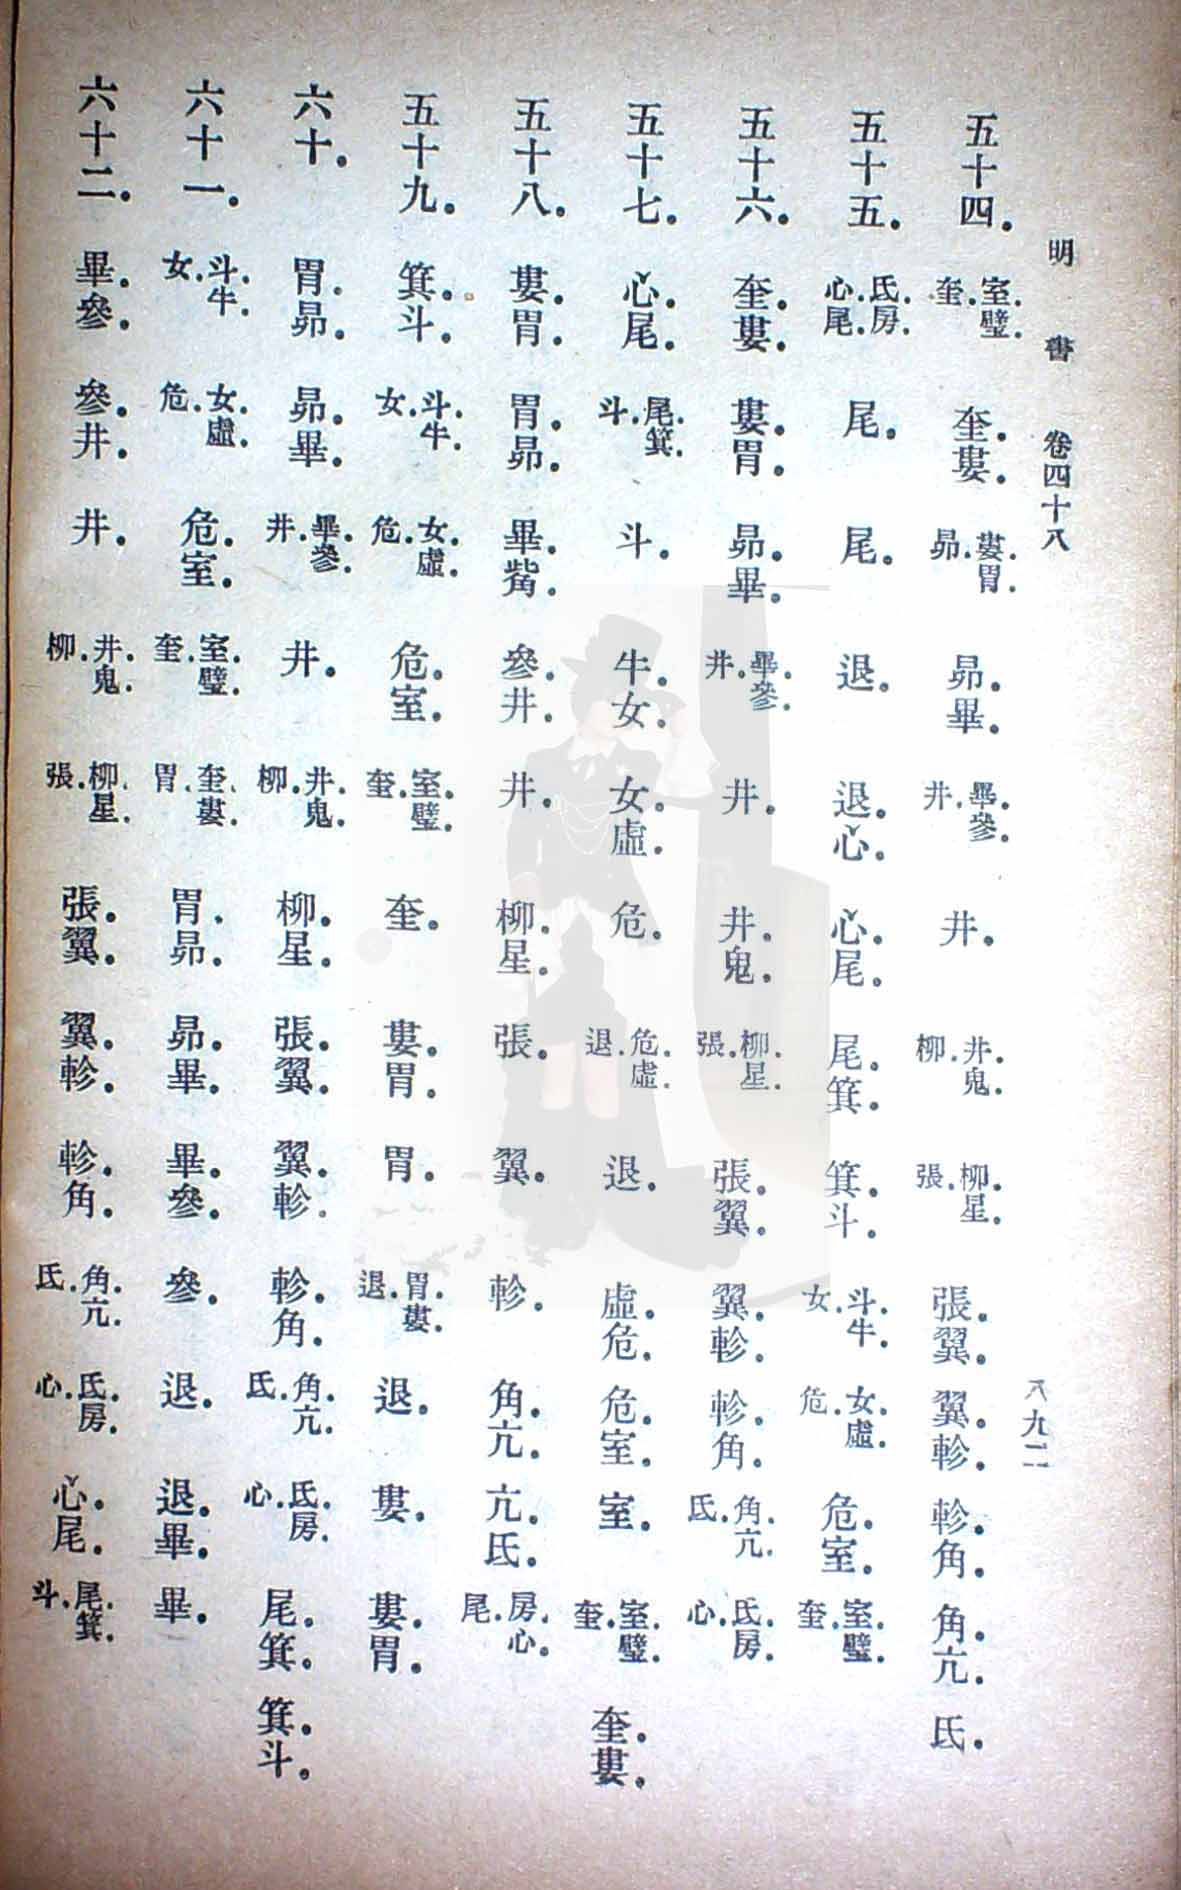 明書 卷四十八 八九二
五十四。 室。璧。奎。 奎。婁。 婁。胃。昴。 昴。畢。 畢。參。井。 井。 井。鬼。柳。 柳。星。張。 張。翼。 翼。軫。 軫。角。 角。亢。 氐。
五十五。 氐。房。心。尾。 尾。 尾。 退。 退。心。 心。尾。 尾。箕。 箕。斗。 斗。牛。女。 女。虛。危。 危。室。 室。璧。奎。
五十六。 奎。婁。 婁。胃。 昴。畢。 畢。參。井。 井。 井。鬼。 柳。星。張。 張。翼。 翼。軫。 軫。角。 角。亢。氐。 氐。房。心。
五十七。 心。尾。 尾。箕。斗。 斗。 牛。女。 女。虛。 危。 危。虛。退。 退。 虛。危。 危。室。 室。 室。璧。奎。 奎。婁。
五十八。 婁。胃。 胃。昴。 畢。觜。 參。井。 井。 柳。星。 張。 翼。 軫。 角。亢。 亢。氐。 房。心。尾。
五十九。 箕。斗。 斗。牛。女。 女。虛。危。 危。室。 室。璧。奎。 奎。 婁。胃。 胃。 胃。婁。退。 退。 婁。 婁。胃。
六十。 胃。昴。 昴。畢。 畢。參。井。 井。 井。鬼。柳。 柳。星。 張。翼。 翼。軫。 軫。角。 角。亢。氐。 氐。房。心。 尾。箕。 箕。斗。
六十一。 斗。牛。女。 女。虛。危。 危。室。 室。璧。奎。 奎。婁。胃。 胃。昴。 昴。畢。 畢。參。 參。 退。 退。畢。 畢。
六十二。 畢。參。 參。井。 井。 井。鬼。柳。 柳。星。張。 張。翼。 翼。軫。 軫。角。 角。亢。氐。 氐。房。心。 心。尾。 尾。箕。斗。